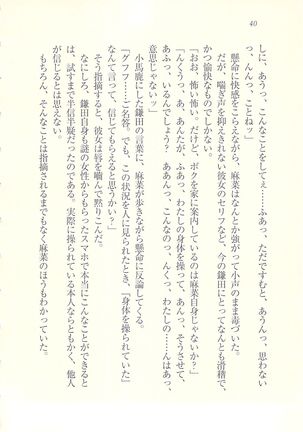 40
しに、あうっ、こんなことをしてぇ……ふあっ、ただですむと、あうんっ、思わない
っ、んんっ、ことねっ」
懸命に快感をこらえながら、麻菜はなんとか強がって小声のまま毒づいた。
だが、喘ぎ声を抑えきれない彼女のセリフなど、今の鎌田にとってなんとも滑稽で、
かつ愉快なものでしかない。
「おお、怖い怖い。だけど、ボクを家に案内しているのは麻菜自身じゃないか？」
「んくうっ、あ、あんたが、ふあっ、わたしの身体を操って、あんっ、そうさせて、
あふっ、いるんでしょう？　ああんっ、こんなの、んくっ、わたしの……んはあっ、
意思じゃないっ」
小馬鹿にした鎌田の言葉に、麻菜が歩きながら懸命に反論してくる。
「グフフ……ご名答。でも、この状況を人に見られたとき、『身体を操られていた』
なんて言って、信じてもらえると思うかい？」
そう指摘すると、彼女は唇を嚙んで黙りこんだ。
なにしろ、鎌田自身も謎の女性からもらったスマホで本当にこんなことができると
は、試すまで半信半疑だったのである。実際に操られている本人ならともかく、他人
が信じるとは思えない。
もちろん、そんなことは指摘されるまでもなく麻菜のほうもわかっていた。